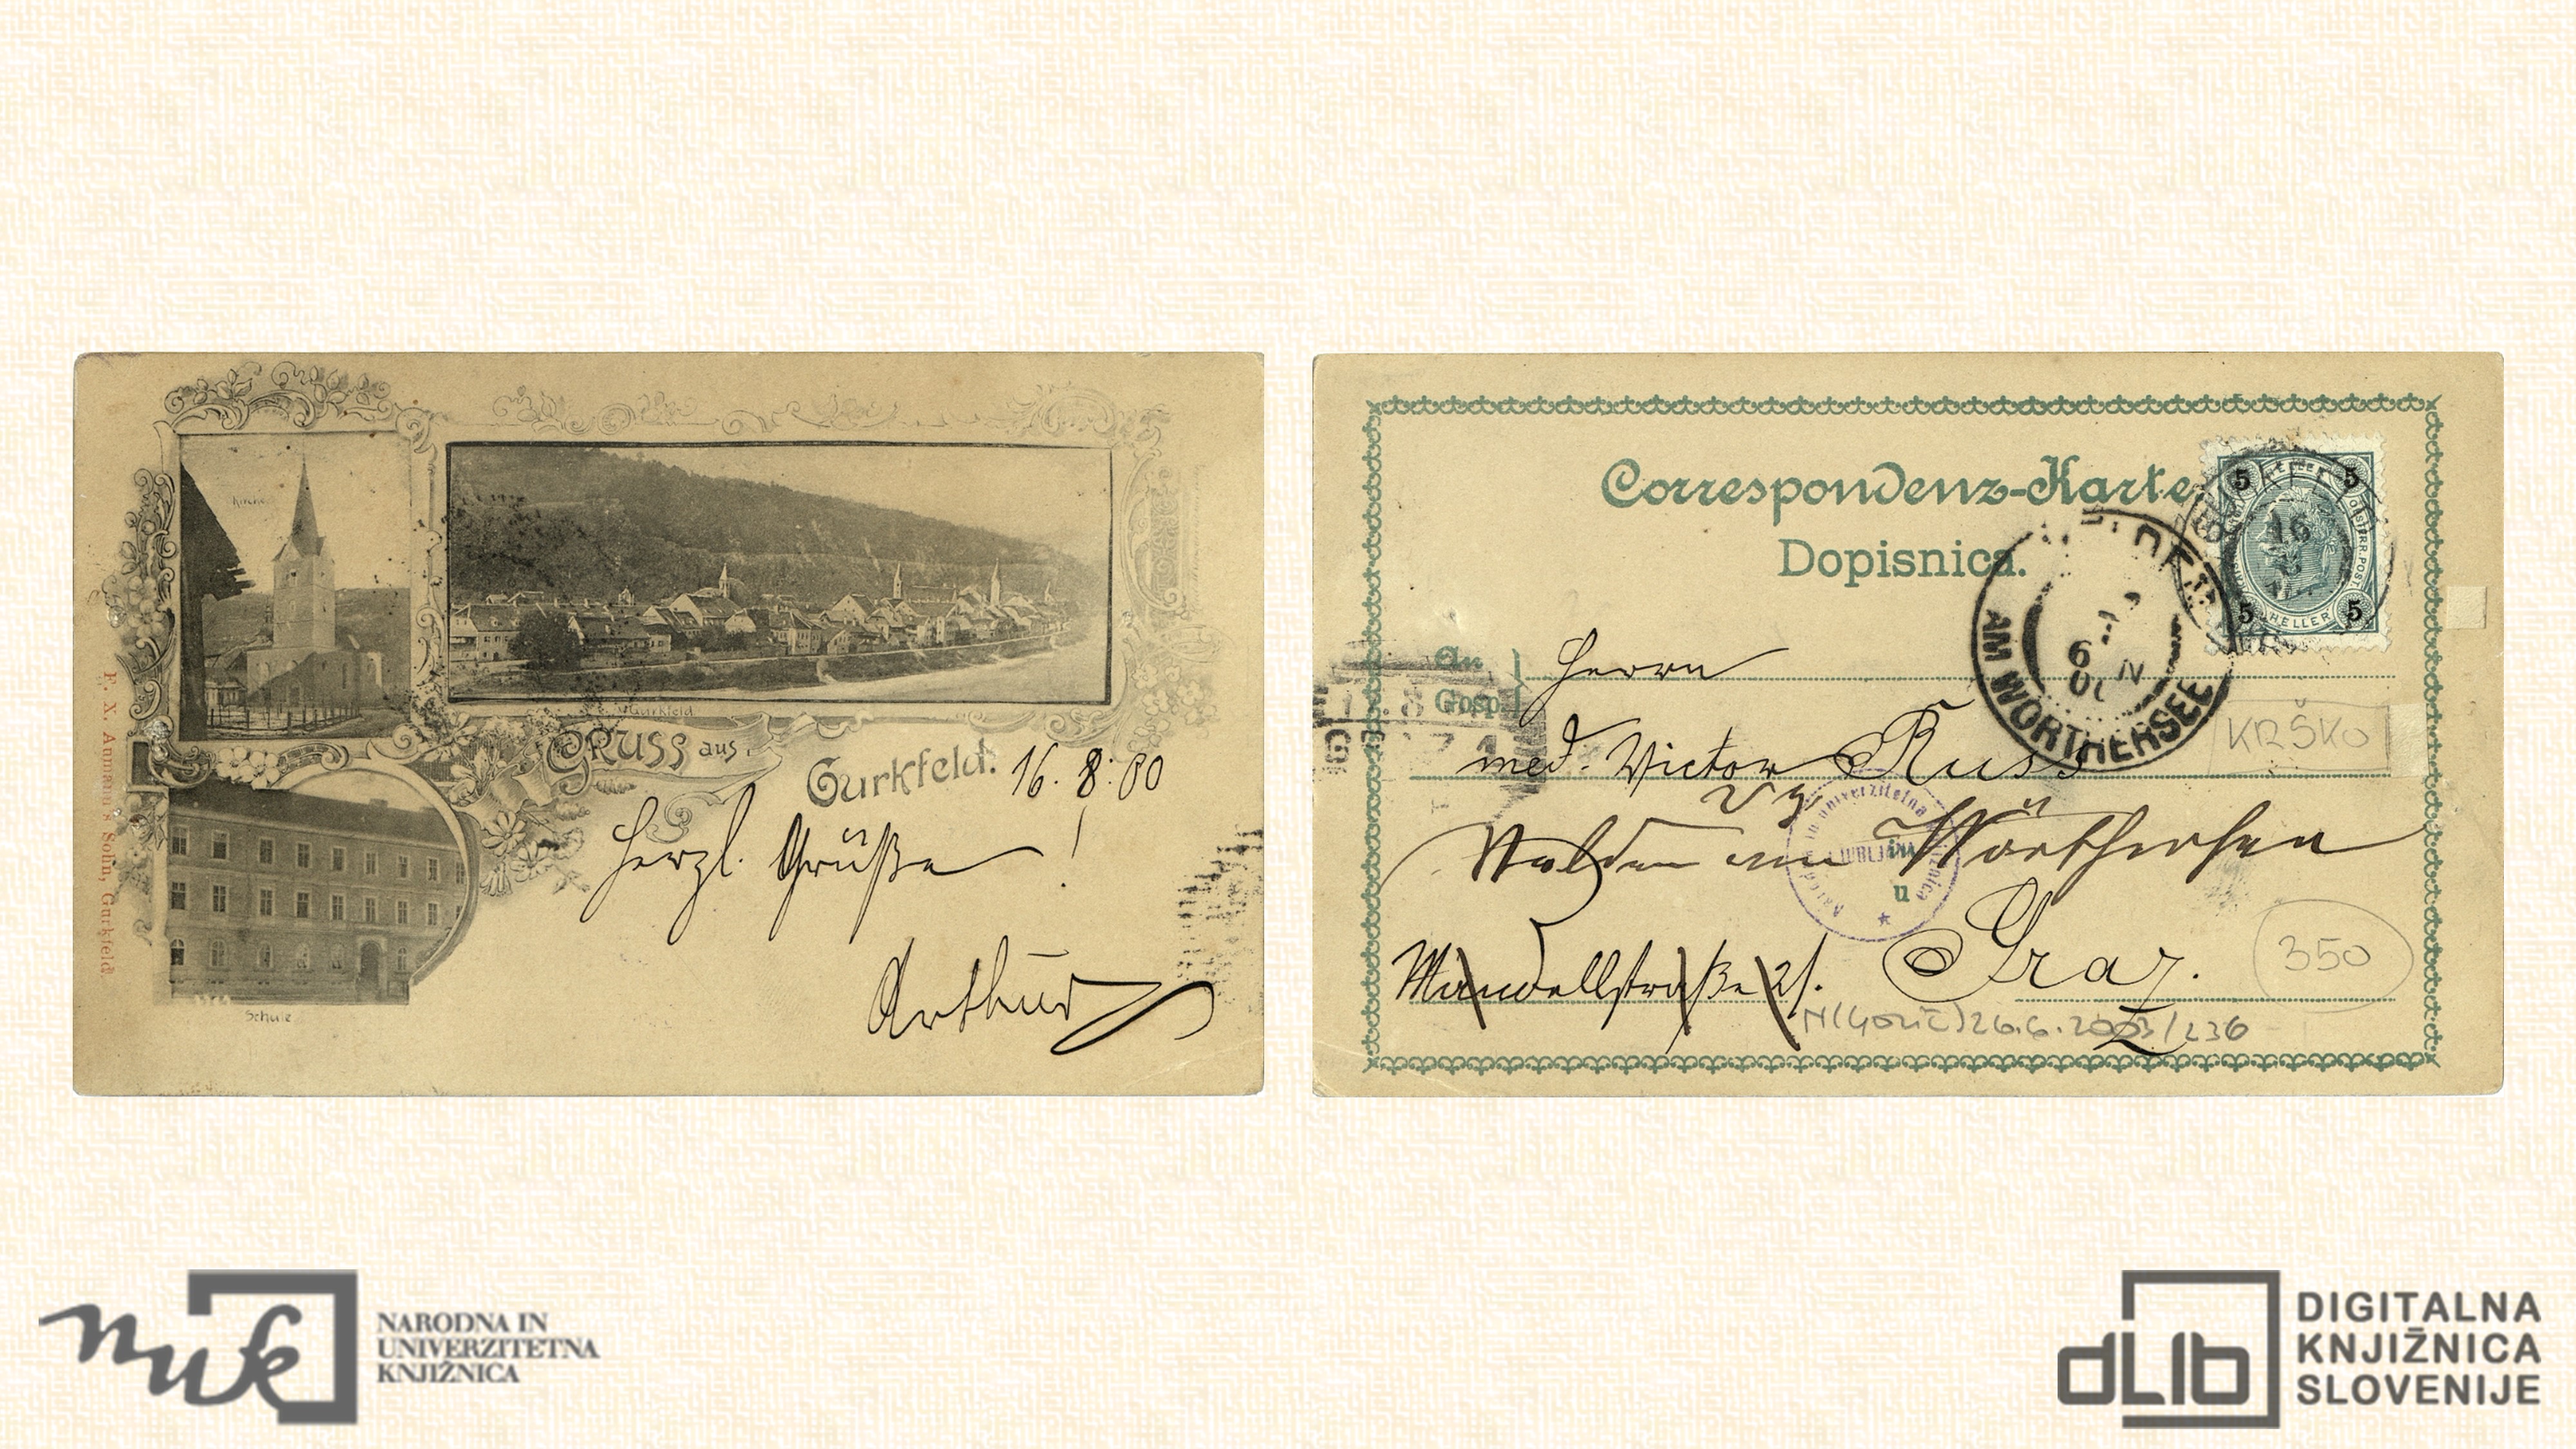 Kirche
Gurkfeld
Gruss aus
Gurkfeld. 16. 8. 00
Herzl. Grüße !
Arthur
Schule
F. X. Aumann's Sohn, Gurkfeld.
Correspondenz-Karte
Dopisnica.
5 5
16
8
5 HELLER 5
AM WÖRTHERSEE
An
Gosp.
Herrn
med. Victor Russ
KRŠKO
Velden am Wörthersee
u
LJUBLJANA
Mandellstraße 21. Graz.
350
26.6.2003/236
nuk
NARODNA IN
UNIVERZITETNA
KNJIŽNICA
dLib
DIGITALNA
KNJIŽNICA
SLOVENIJE